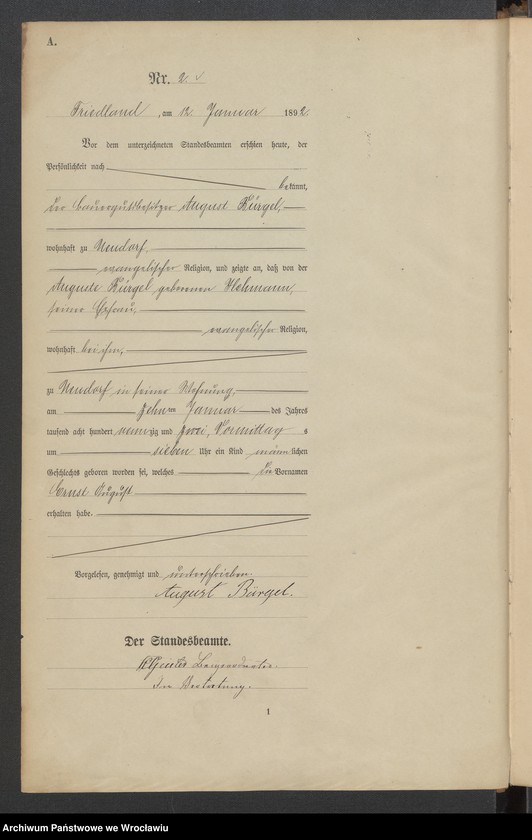 A.
Nr. 2
Friedland, am 12 Januar 1892.
Vor dem unterzeichneten Standesbeamten erschien heute, der
Persönlichkeit nach
bekannt,
der Bauergutsbesitzer August Bürgel,
wohnhaft zu Neudorf,
evangelischer Religion, und zeigte an, daß von der
Auguste Bürgel geborenen
seiner Ehefrau,
evangelischer Religion,
wohnhaft bei ihm,
zu Neudorf in seiner Wohnung,
am zehnten Januar des Jahres
tausend acht hundert neunzig und zwei, Vormittags
um sieben Uhr ein Kind männlichen
Geschlechts geboren worden sei, welches die Vornamen
Ernst August
erhalten habe.
Vorgelesen, genehmigt und unterschrieben
August Bürgel.
Der Standesbeamte.
In Vertretung.
1
Archiwum Państwowe we Wrocławiu